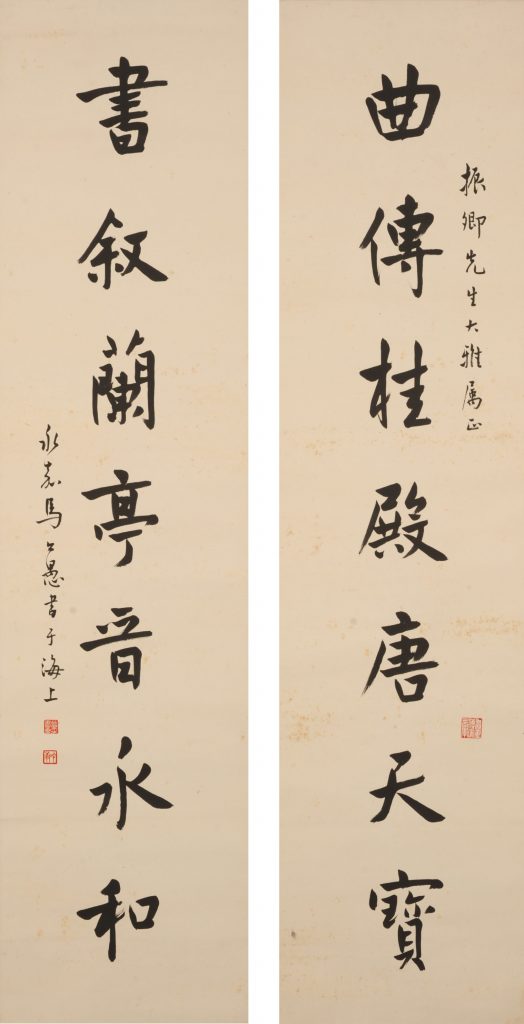 振卿先生大雅属正
曲傳桂殿唐天寶
書叙蘭亭晋永和
永嘉馬公愚書于海上